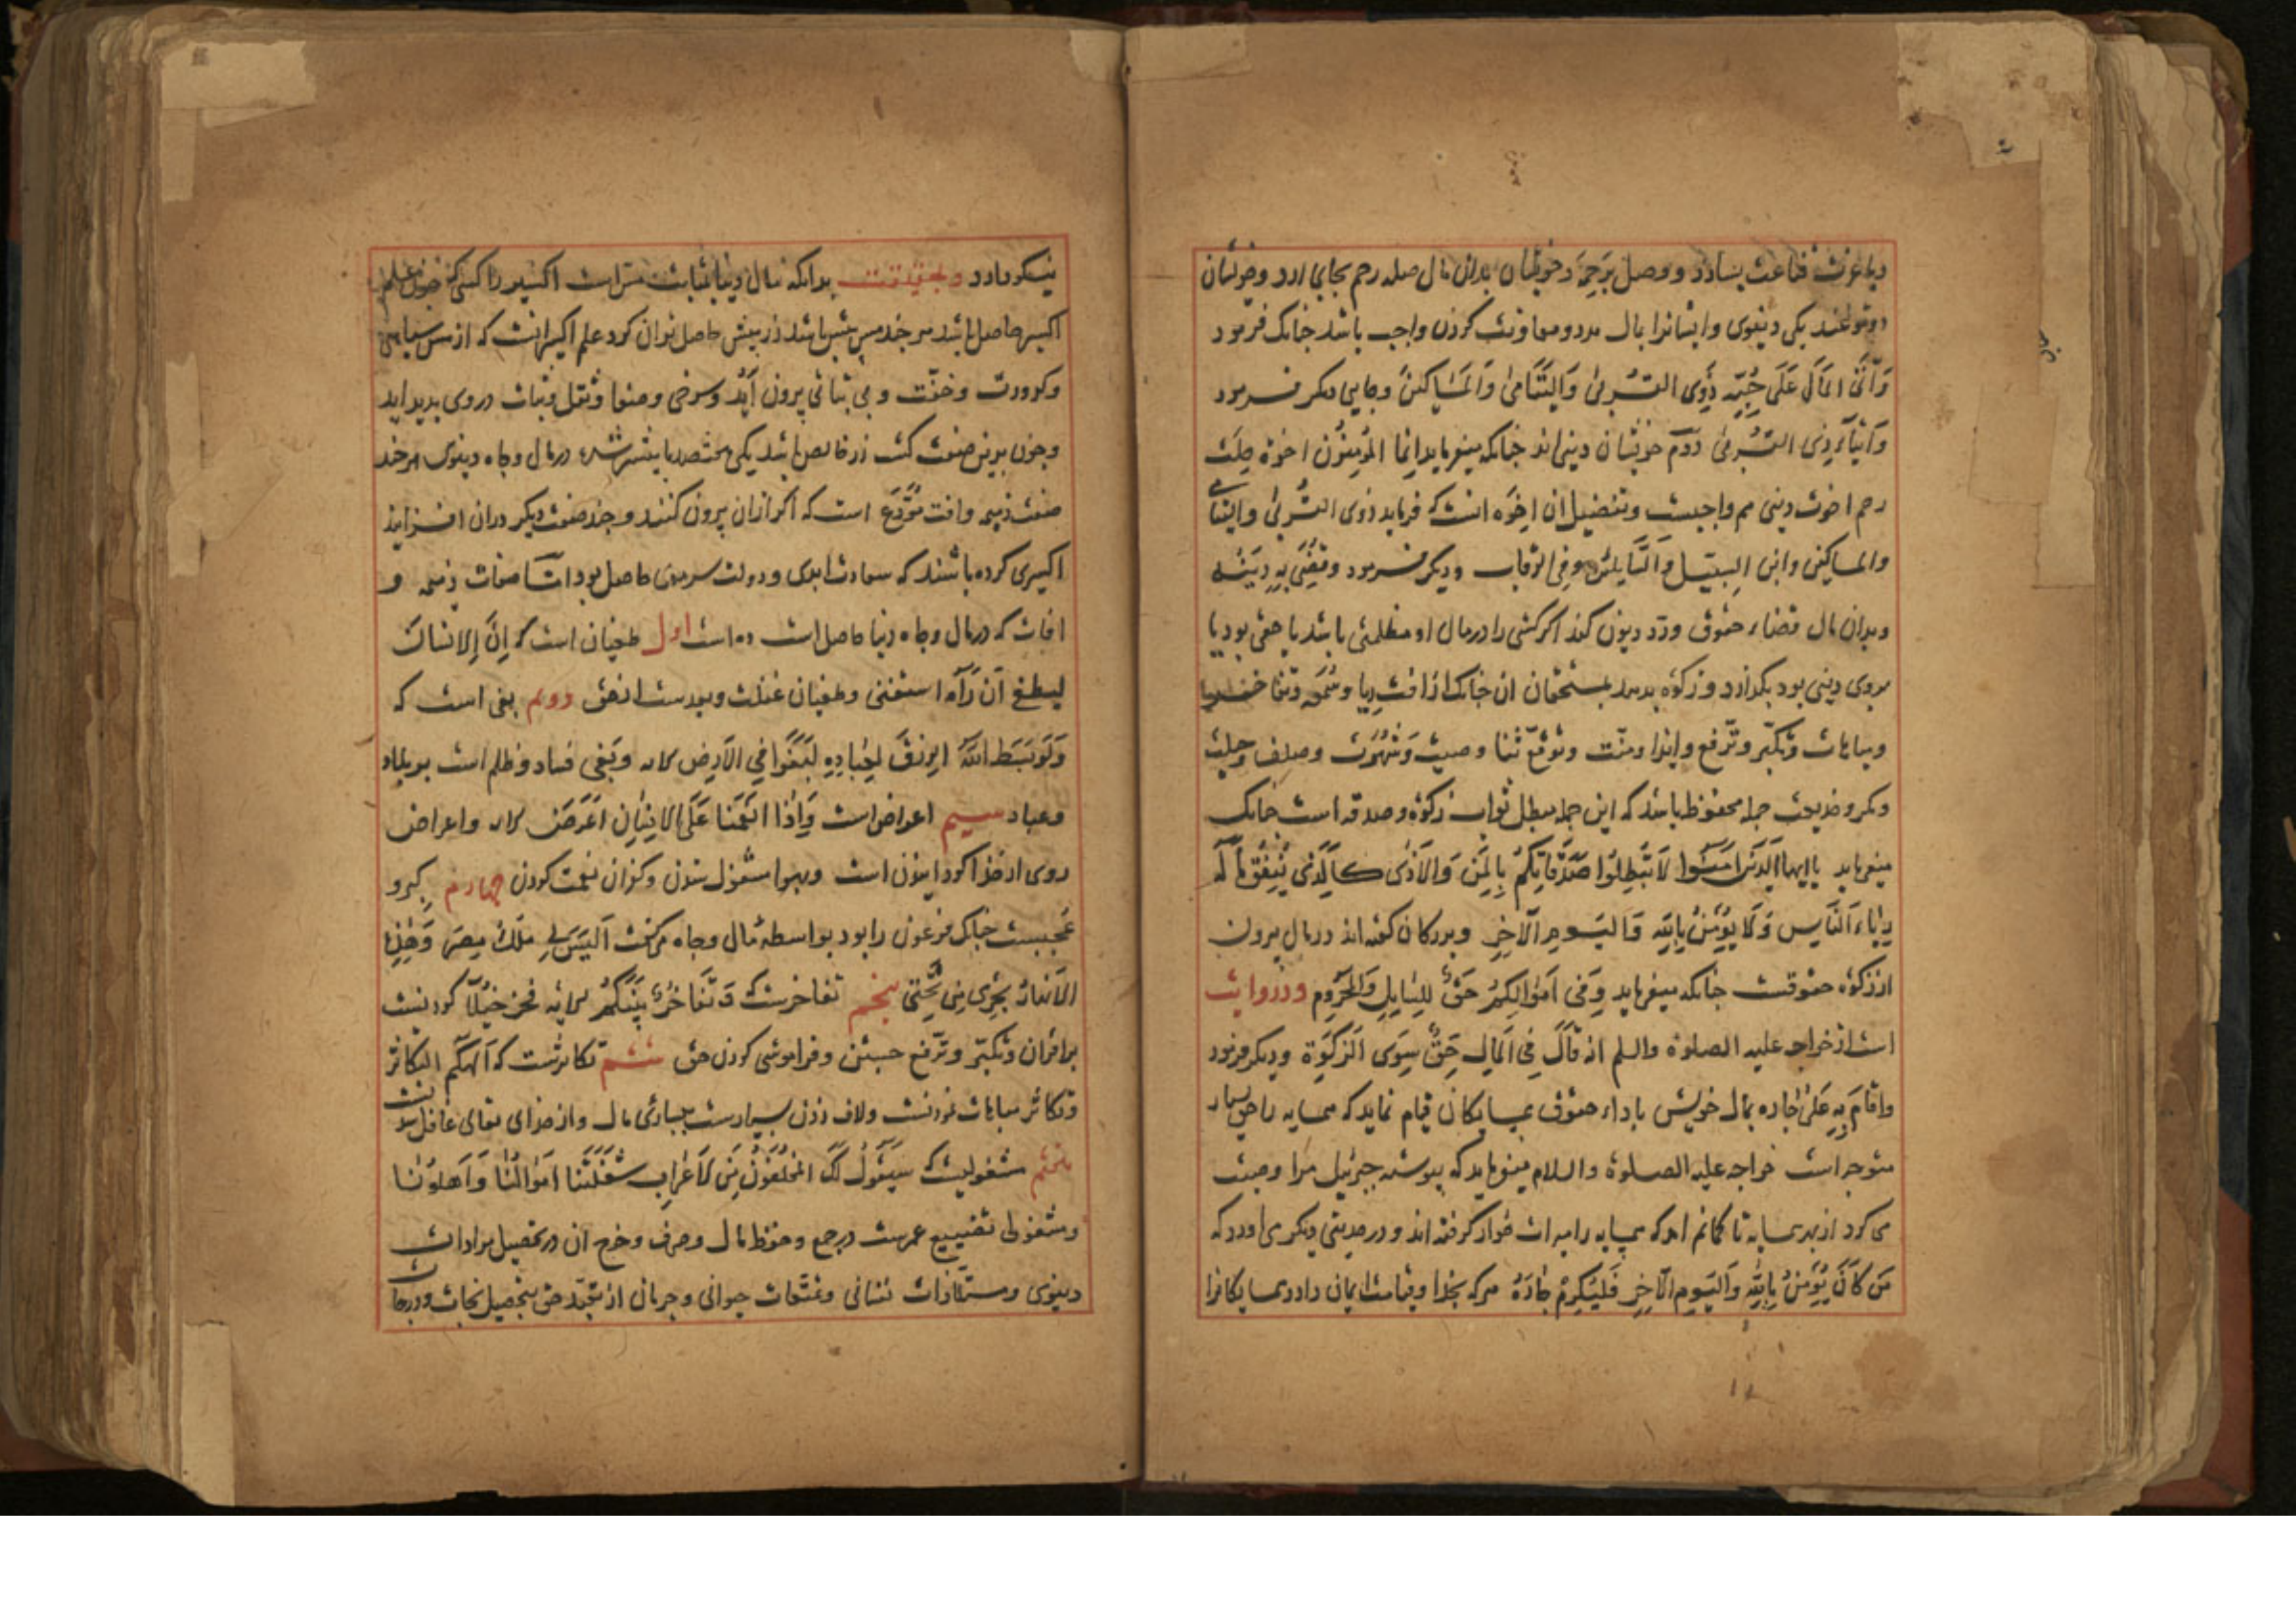 دیا عزت قناعت بسازد و وصل برحم و خویشان بدان مال صله رحم بجای ارد و خویشان
دو نوعند یکی دنیوی و ایشانرا بمال مدد و معاونت کردن واجب باشد جنانک فرمود
وَآتَی المَالَ عَلَی حُبِّه ذَوِی القُربیٰ وَالیَتَامیٰ وَالمَسَاکِینَ و جایی دیکر فرمود
وَایتآیِ ذِی القُربیٰ دوم خویشان دینی اند جنانکه میفرماید اِنما المُؤمِنُون اخوة صِلَت
رحم اخوت دینی هم واجبست و تفضیل ان اخوَه انست که فرماید ذوی القُربیٰ والیتامی
والمساکین وابن السبیل وَالسَّایلین وفِی الرقاب و دیکر فرمود و یقضی بِهِ دینه
و بدان مال قضاء حقوق و رد دیون کند اکر کسی را در مال او مظلمتی باشد یا حقی بود یا
بروی دینی بود بکذارد و زکوة بدهد بمستحقان ان جنانک از افت ریا و سُمعَه و
و مباهات و تکبّر و ترفع و ایذا و منّت و توقع ثنا و صیت وَ شهرت و صلف و حیلت
و مکر و خدیعت جمله محفوظ باشد که این جمله مبطل ثواب زکوة و صدقه است جنانک
میفرماید یا ایها الّذینَ امنُوا لَا تُبطِلُوا صَدَقَاتِکُم بِالمَنِّ وَالاَذیٰ کَالَّذی یُنفِقُ مالَه
رِئاءَ النَّاسِ وَلَا یُؤمِنُ بِاللهِ وَالیَومِ الآخِرِ و بزرکان کفته اند در مال بیرون
از زکوة حقوقست جنانکه میفرماید وَفی اَموٰالِکُم حَقٌّ لِلسَّایلِ وَالمَحرُومِ و در روایت
است از خواجه علیه الصلوة والسلم انه قالَ فِی المَالِ حَقٌّ سِوَی الزَّکوٰةِ و دیکر فرمود
بمال خویش باداء حقوق همسایکان قیام نماید که همسایه را حق بسیار
متوجه است خواجه علیه الصلوة والسلام میفرماید که پیوسته جبرئیل مرا وصیت
می کرد از بهر همسایه تا کمانم امد که همسایه را میراث خوار کرفته اند و در حدیثی دیکر می اورد که
مَن کانَ یُؤمِنُ بِاللهِ وَالیَومِ الآخِرِ فَلیُکرِم جٰارَهُ هر که بخدا و قیامت ایمان دارد همسایکانرا
نیکو دارد و بحقیقت بدانکه مال دنیا بمثابت مس است اکسیر را کسی که خوض علم
اکسیر حاصل باشد هر جند مس بیش باشد زر بیش حاصل توان کرد علم اکسیر انست که از مس سیاهی
و کدورت و خفّت و بی ثباتی بیرون آید و سرخی و صفا و ثقل و ثبات در وی بدید اید
و جون بدین صفت کشت زر خالص باشد یکی مختصد باشد در مال و جاه دنیوی هر جند
صفت ذمیمه و افت مُودَع است که اکر ازان بیرون کنند و جند صفت دیکر دران افزایند
اکسیری کرده باشند که سعادت ابدی و دولت سرمدی حاصل بود امّا صفات ذمیمه و
افات که در مال و جاه دنیا حاصل است ده است اول طغیان است که اِنَّ الانسانَ
لیطغی اَن رَآهُ استغنی و طغیان غفلت و بعدست از حق دوم بغی است که
وَلَو بَسَطَ اللهُ الرزقَ لِعِبادِهِ لَبَغَوا فِی الاَرضِ الایه و بَغی فساد و ظلم است بر بلاد
و عباد سیم اعراض است وَاِذا انعَمنَا عَلَی الاِنسٰانِ اَعرَضَ الایه و اعراض
روی از خدا کردانیدن است و بهوا مشغول شدن و کفران نعمت کردن جهارم کبر و
عُجبست جنانک فرعون را بود بواسطه مال و جاه می کفت اَلَیسَ لِی مُلکُ مِصرَ وَهٰذِهِ
الاَنهارُ تجرِی مِن تَحتِی بنجم تفاخرست که وَتَفَاخُرٌ بَینَکُم الایه فخر و خیلا کردنست
بر اقران و تکبّر و ترفع جستن و فراموشی کردن حق ششم تکاثرست که اَلهٰکُم التکاثر
و تکاثر مباهات نمودنست و لاف زدن بسیارست ببسیاری مال و از خدای تعالی غافل شدنست
هفتم مشغولیست که سَیَقُولُ لَکَ المُخَلَّفُونَ مِنَ الاَعرٰابِ شَغَلَتنَا اَموٰالُنٰا وَاَهلُونٰا
و مشغولی تضییع عمرست در جمع و حفظ مال و صرف و خرج ان در تحصیل مرادات
دنیوی و مستلذات نفسانی و تمتّعات حیوانی و حرمان از تعبّد حق بتحصیل نجات و درجات